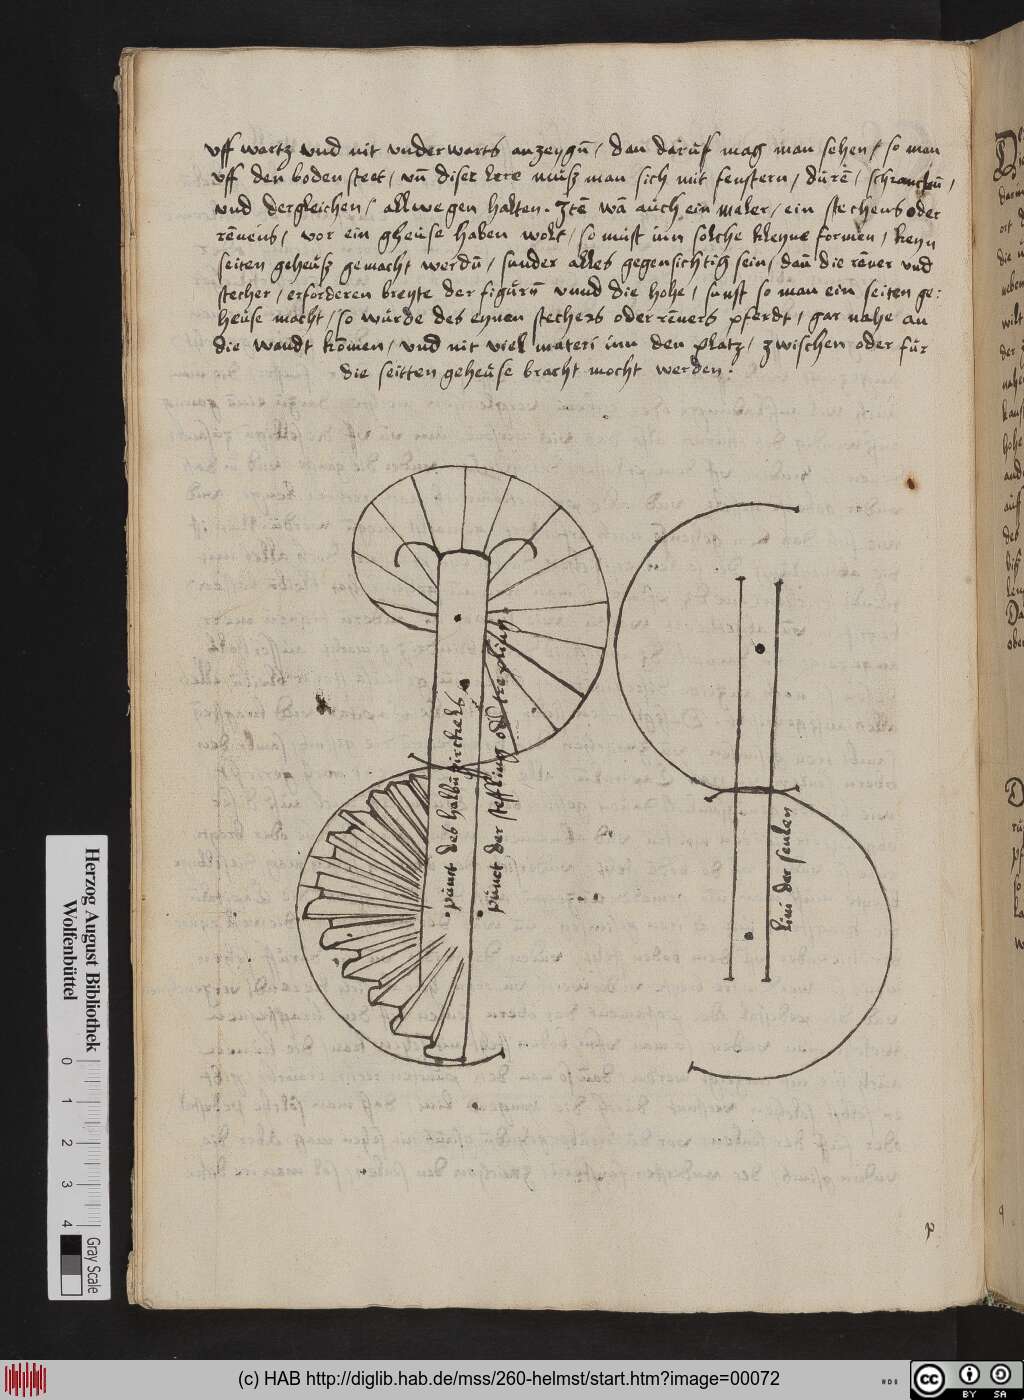 vff wartz vnd nit vnderwarts anzeygn̄ / dan darůf mag man sehen / so man
vff den boden steet / vn̄ diser lere můſz man sich mit fenstern / důrē / schrancken /
vnd dergleichen / allwegen halten. Itē wā aůch ein maler / ein stechens oder
rēnens / vor ein geheůse haben wolt / so můst inn solche kleyne formen / keyn
seiten geheůſz gemacht werdn̄ / sunder alles gegensichtig sein / dan̄ die rēner vnd
stecher / erforderen breyte der figůrn̄ vnnd die hohe / sunst so man ein seiten ge:
heůse macht / so wůrde des eynen stechers oder rēners pferdt / gar nahe an
die wandt kōmen / vnd nit viel materi inn den platz / zwischen oder fůr
die seitten geheůse bracht mocht werden :
půnct des halbn̄ zirckels
půnct der steffling
lini der seulen
Herzog August Bibliothek
Wolfenbüttel
0 1 2 3 4
Gray Scale
(c) HAB http://diglib.hab.de/mss/260-helmst/start.htm?image=00072
cc BY SA